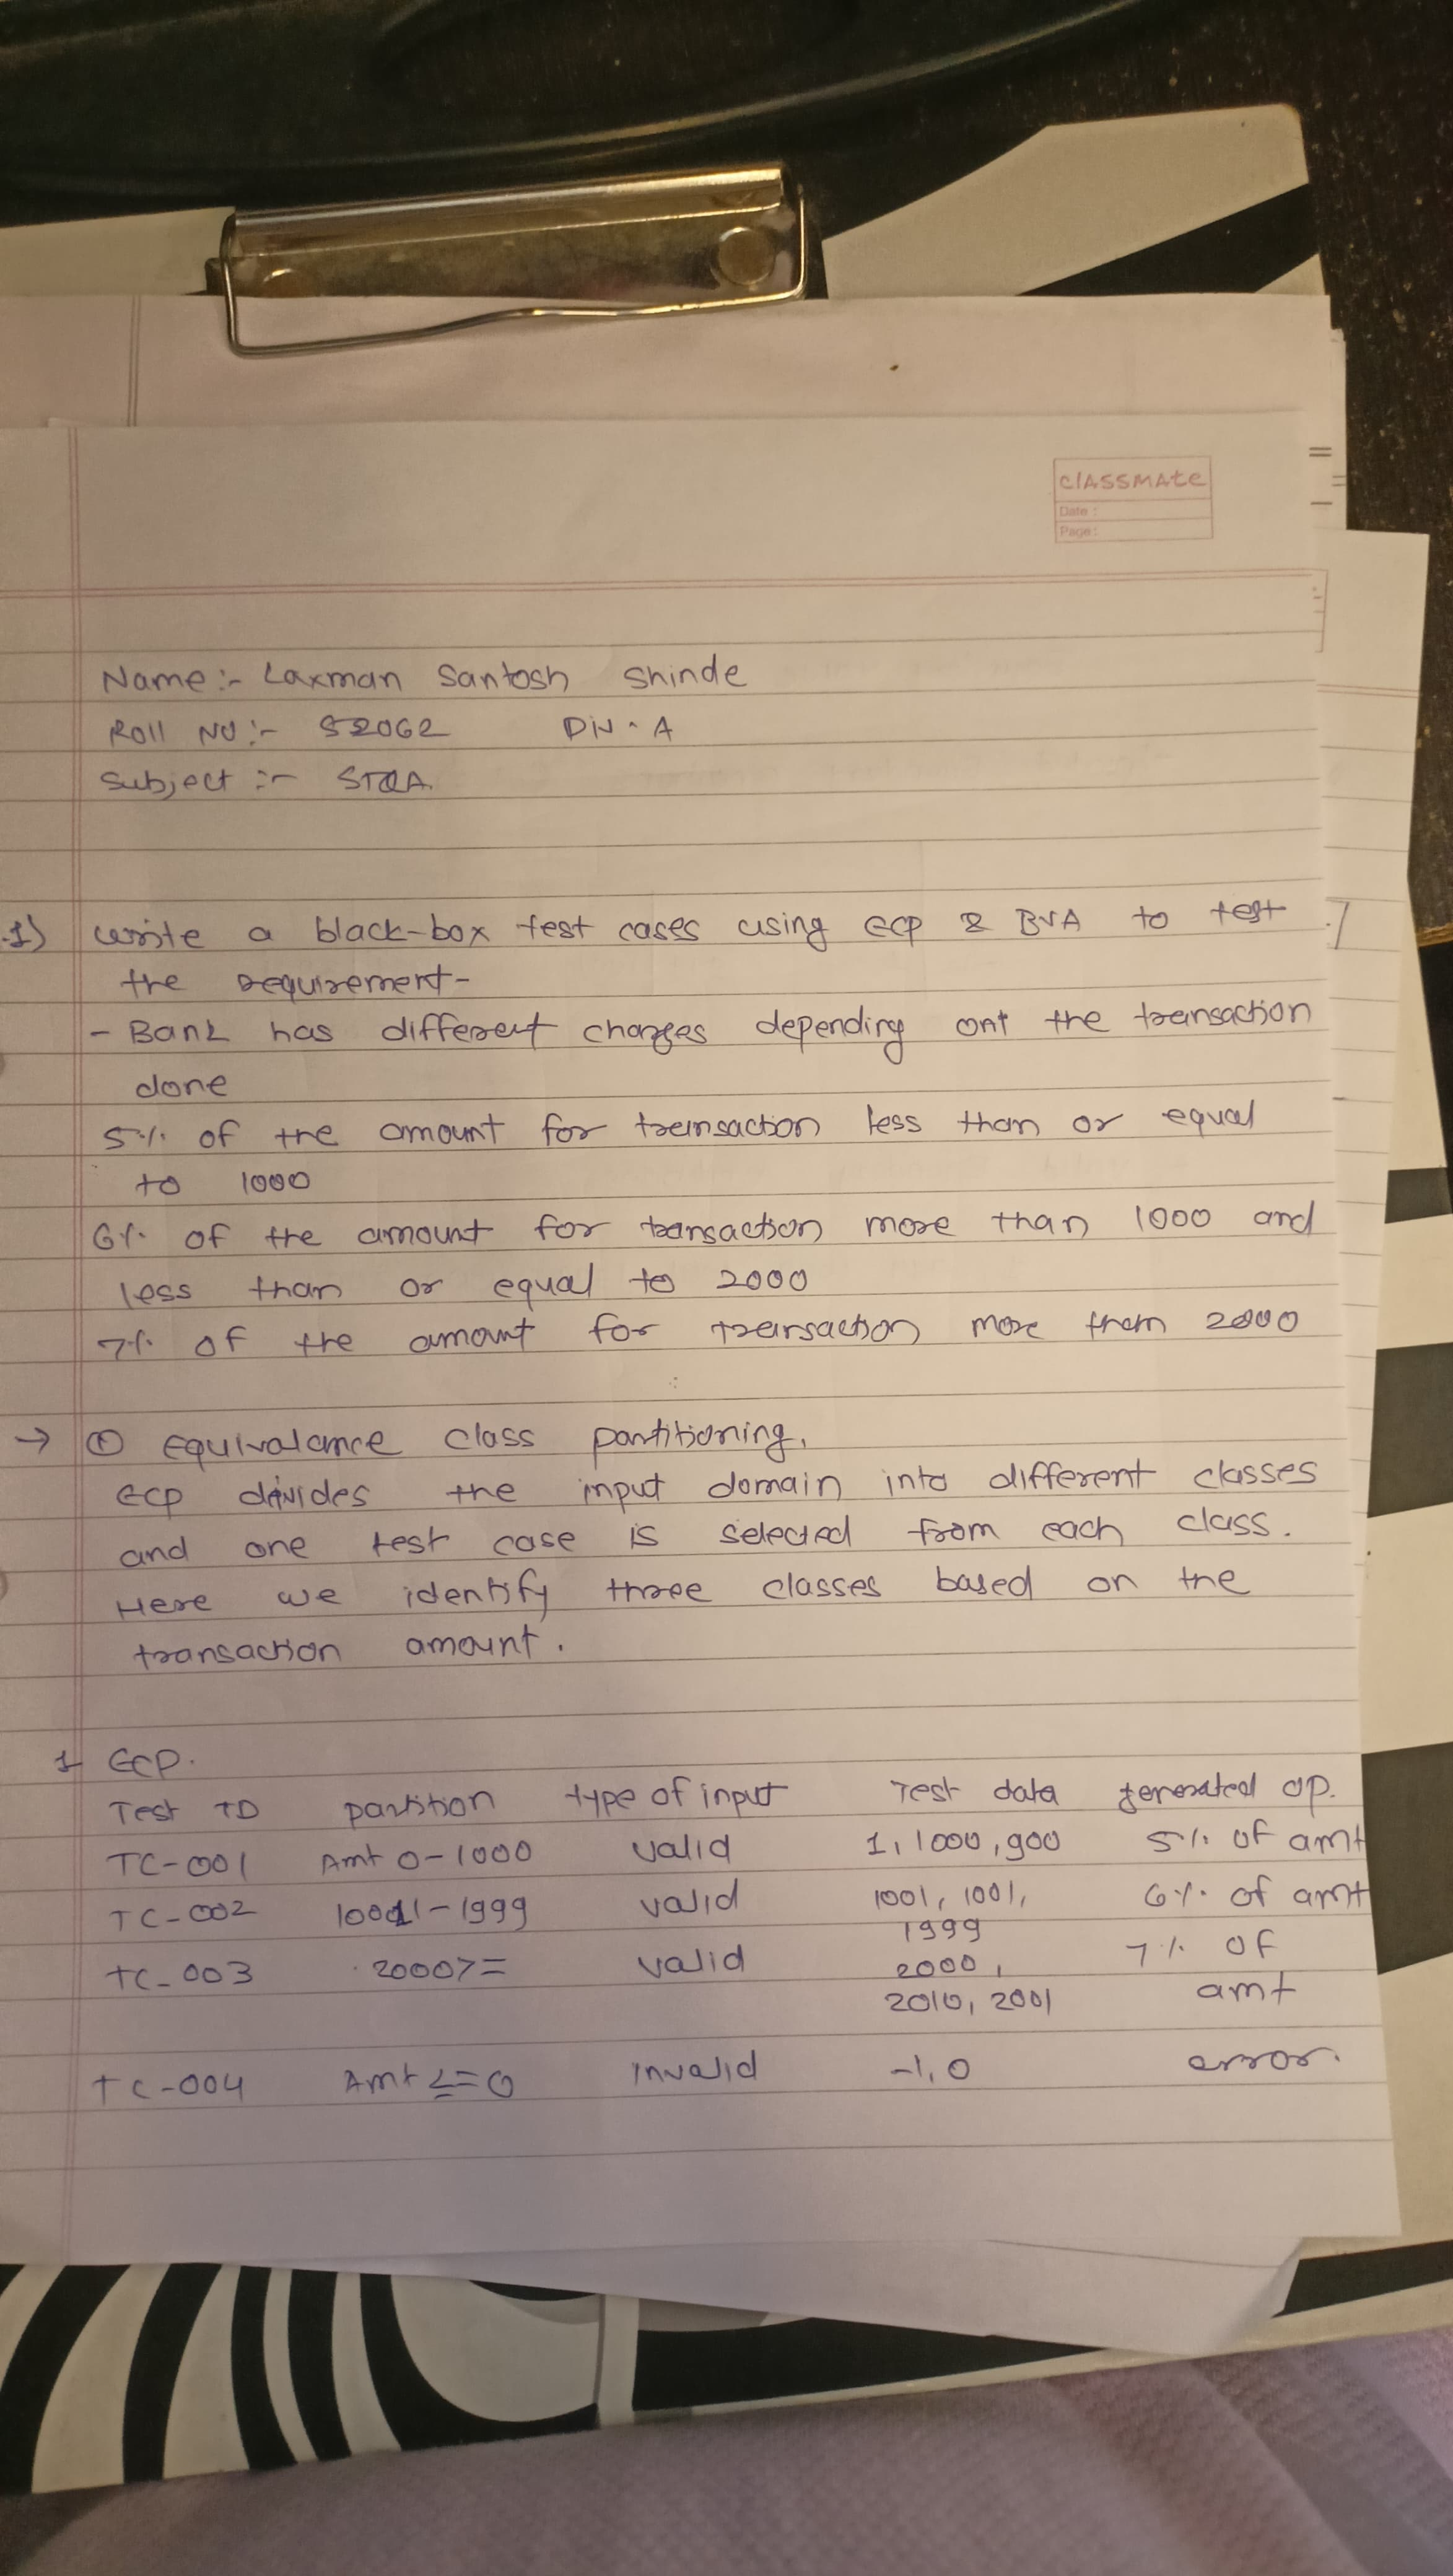 classmate
Date :
Page :
Name :- Laxman Santosh Shinde
Roll No :- 52062 Div - A
Subject :- STQA
1) write a black-box test cases using ECP & BVA to test
the requirement-
- Bank has different charges depending ont the transaction
done
5% of the amount for transaction less than or equal
to 1000
6% of the amount for transaction more than 1000 and
less than or equal to 2000
7% of the amount for transaction more than 2000
→ ① Equivalance class partitioning.
ECP divides the input domain into different classes
and one test case is selected from each class.
Here we identify three classes based on the
transaction amount.
1 ECP.
Test ID partition type of input Test data generated op.
TC-001 Amt 0-1000 valid 1, 1000, 900 5% of amt
TC-002 1001-1999 valid 1001, 1001, 6% of amt
1999
TC-003 2000>= valid 2000, 7% of
2010, 2001 amt
TC-004 Amt <=0 Invalid -1, 0 error.